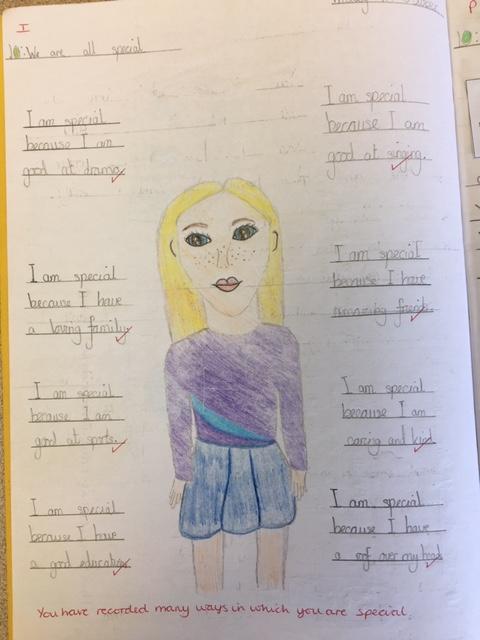 I
We are all special
I am special
because I am
good at drama.
I am special
because I have
a loving family.
I am special
because I am
good at sports.
I am special
because I have
a good education.
I am special
because I am
good at singing.
I am special
because I have
amazing friends.
I am special
because I am
caring and kind
I am special
because I have
a roof over my head.
You have recorded many ways in which you are special.